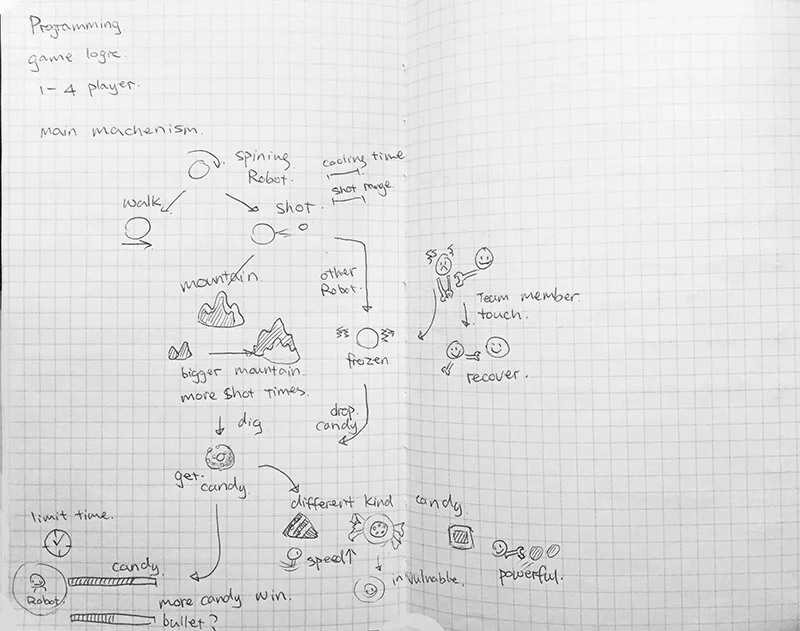 Programming
game logic.
1-4 player.
main machenism.
spining
Robot.
cooling time
shot range
walk
shot.
mountain.
other
Robot.
Team member
touch.
frozen
recover.
bigger mountain.
more shot times.
drop
candy
dig
get
candy.
different kind candy.
limit time.
speed↑
powerful.
candy.
invulnable.
Robot.
more candy win.
bullet?